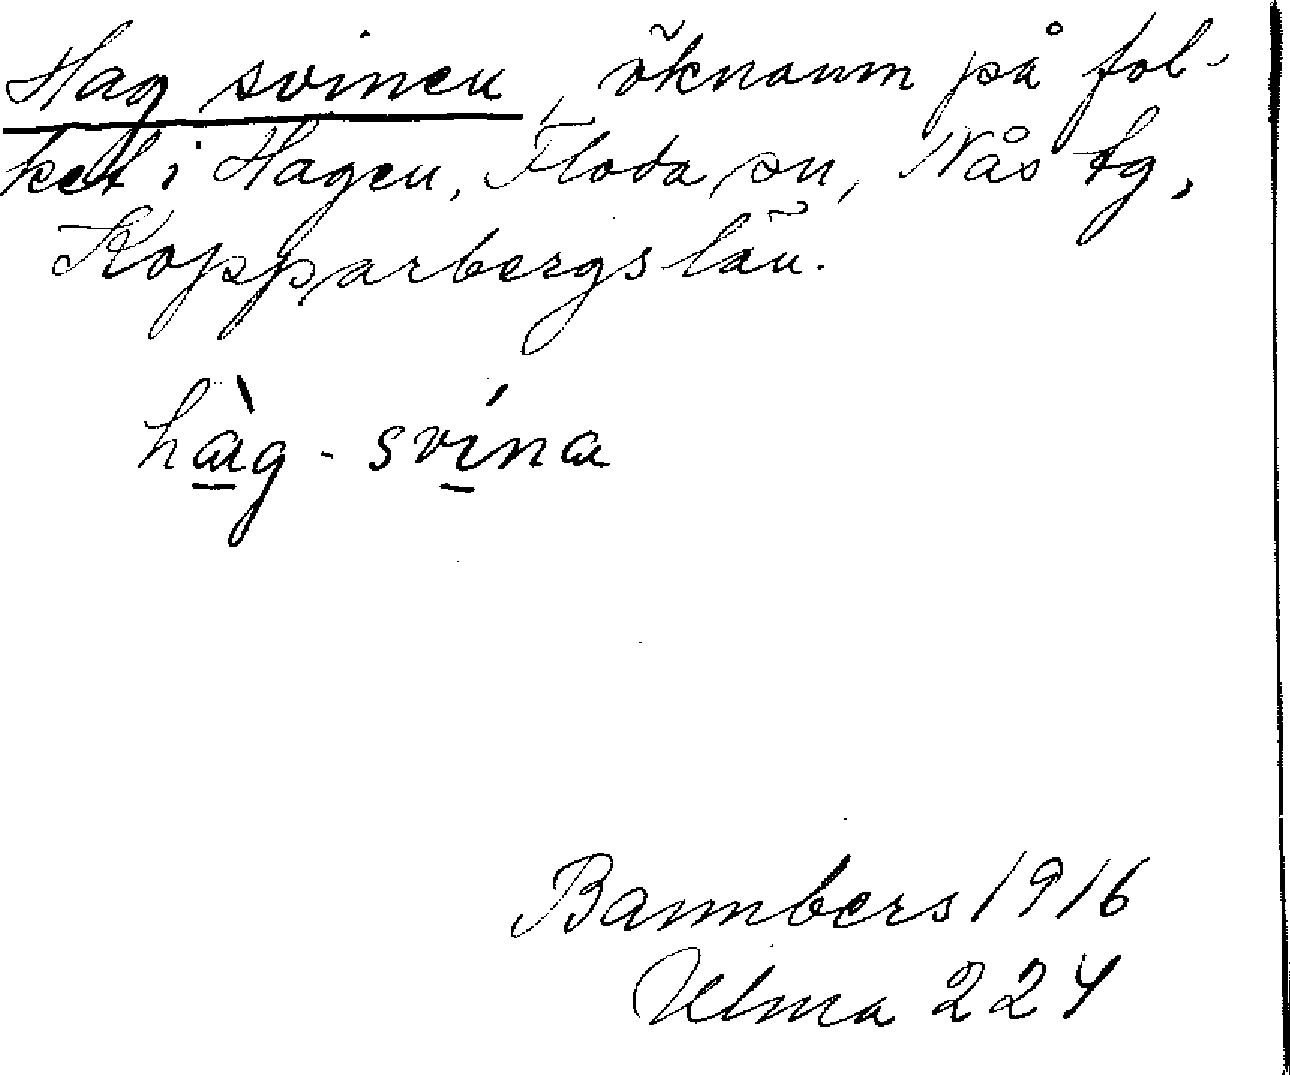 Hag svinen, öknamn på fol-
ket i Hagen, Floda sn, Nås tg,
Kopparbergs län.
hàg - svína
Bannbers 1916
Ulma 224